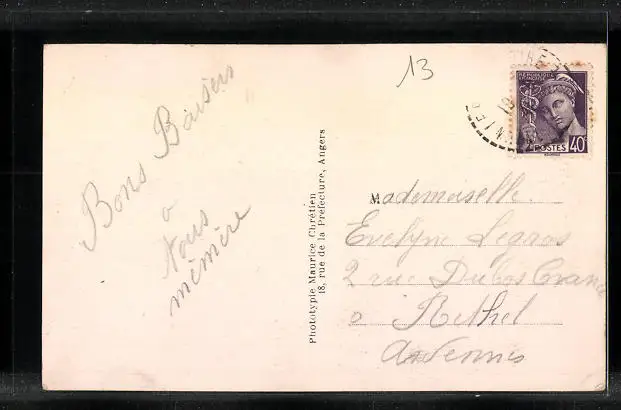 13
RÉPUBLIQUE
FRANÇAISE
POSTES 40
Bons Baisers
a
Nous
mémère
Phototypie Maurice Chrétien
18, rue de la Préfecture, Angers
Mademoiselle
Evelyne Legros
2 rue Dubos
a Rethel
Ardennis